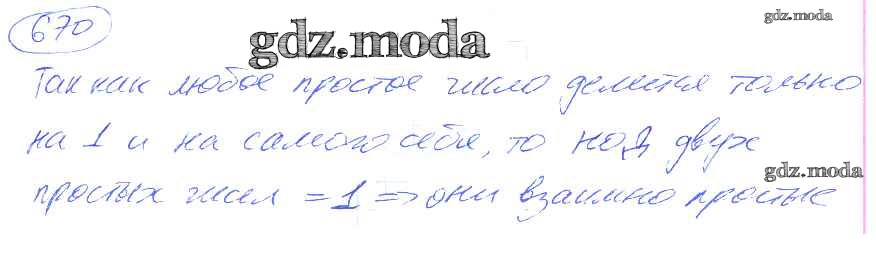 670
gdz.moda
gdz.moda
Так как любое простое число делится только
на 1 и на самого себя, то НОД двух
gdz.moda
простых чисел = 1 => они взаимно простые